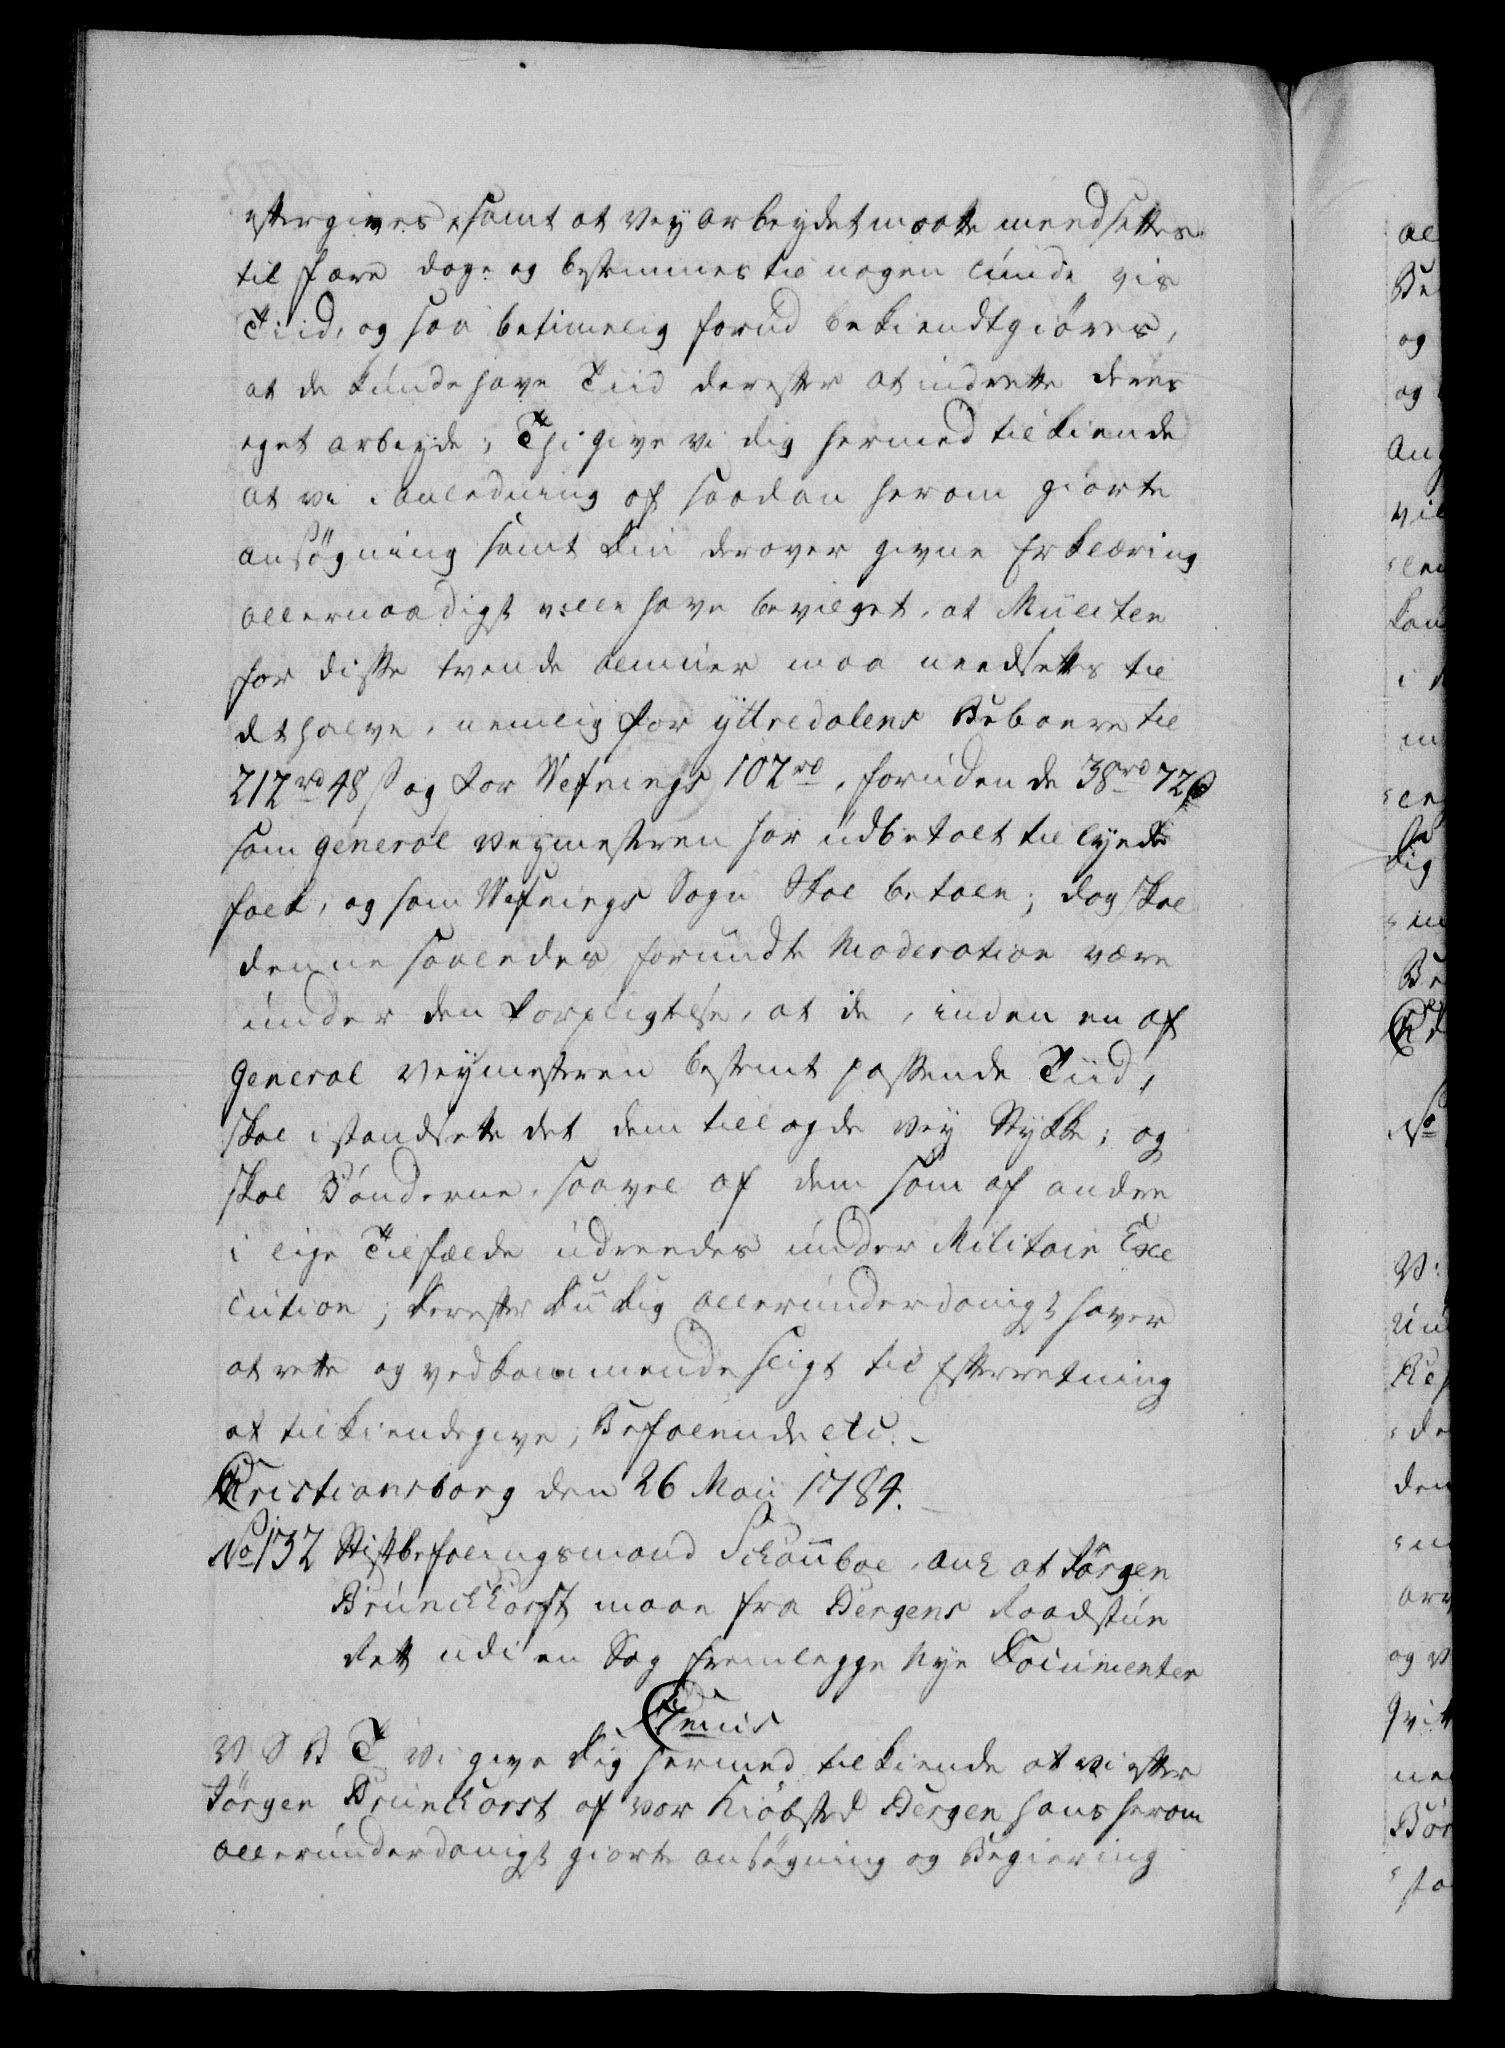 eftergives, samt at Veyarbeydet maatte needsettes
til færre dage og bestemmes til nogen lunde vis
Tiid, og saa betimelig forud bekiendtgiöres,
at de kunde have Tiid derefter at indrette deres
eget arbeyde; Thi give vi dig hermed tilkiende
at vi i anledning af saadan herom giorte
ansøgning samt din derover givne Erklæring
allernaadigst ville have bevilget, at Mulcten
for disse tvende almuer maa needsettes til
det halve, nemlig for yttredalens Beboere til
212 rd 48 s og for Vefsnings 102 rd, foruden de 38 rd 72 s
som General Veymesteren har udbetalt til leyede
folk, og som Vefsnings Sogn skal betale; dog skal
denne saaledes forundte Moderation være
under den Forpligtelse, at de, inden en af
General Veymesteren bestemt passende Tiid,
skal istandsette det dem tillagde Vey Stykke; og
skal Bönderne, saavel af dem som af andre
i lige Tilfælde udreedes under Militair Exe
cution; derefter du dig allerunderdanigst haver
at rette og vedkommende sligt til Efterretning
at tilkiendegive; Befalende etc.
Christiansborg den 26 Maii 1784.
No 132 Stiftbefalingsmand Schouboe, ank at Jörgen
Brunckhorst maae fra Bergens Raadstue
Rett udi en Sag fremlegge Nye Documenter
Gratis
V S B T Vi give dig hermed tilkiende at vi efter
Jörgen Brunckhorst af vor Kiöbsted Bergen hans herom
allerunderdanigst giorte ansøgning og Begiering